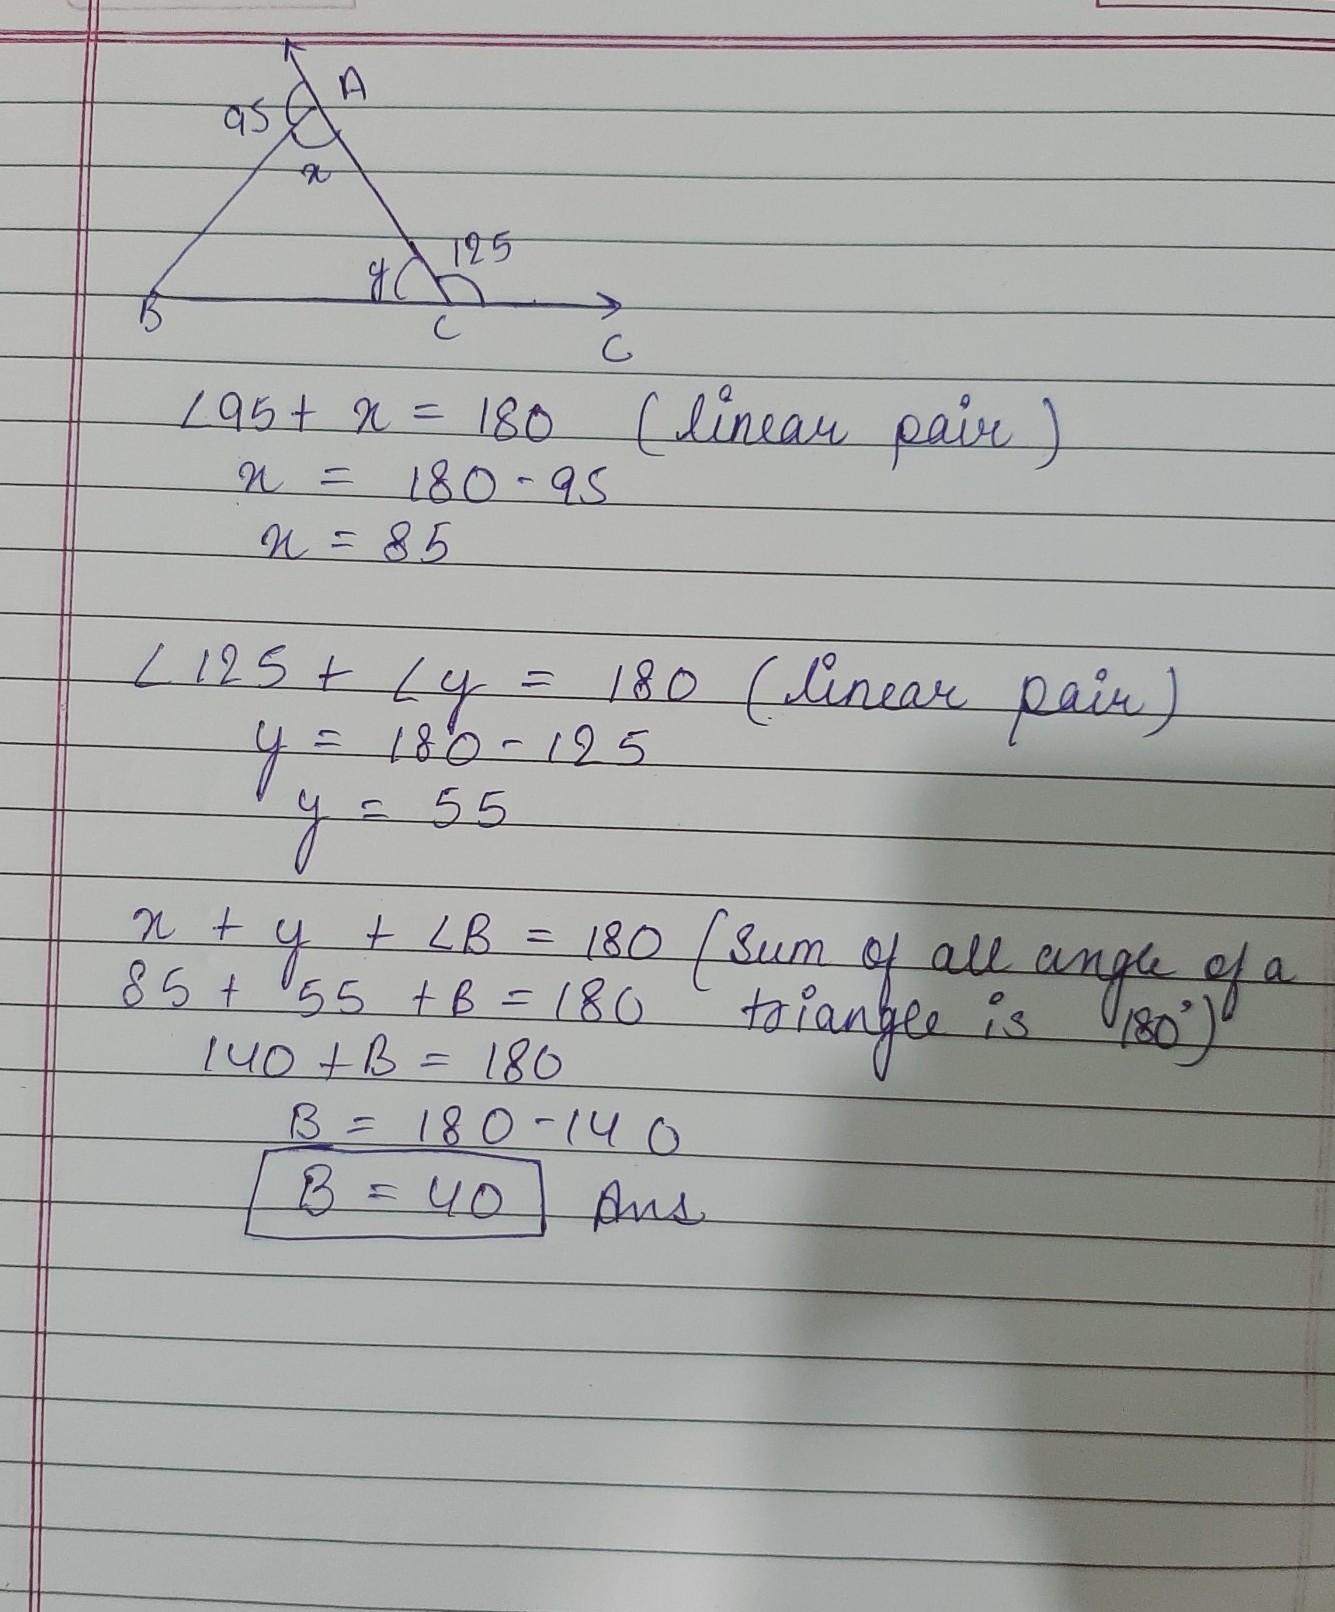 A
95
x
y
125
B
C
C
∠95 + x = 180 (linear pair)
x = 180 - 95
x = 85
∠125 + ∠y = 180 (linear pair)
y = 180 - 125
y = 55
x + y + ∠B = 180 (Sum of all angle of a
85 + 55 + B = 180 triangle is 180°)
140 + B = 180
B = 180 - 140
B = 40 Ans